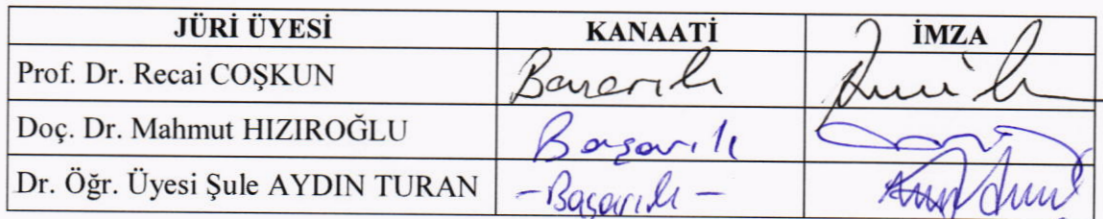 JÜRİ ÜYESİ KANAATİ İMZA
Prof. Dr. Recai COŞKUN Başarılı
Doç. Dr. Mahmut HIZIROĞLU Başarılı
Dr. Öğr. Üyesi Şule AYDIN TURAN -Başarılı-